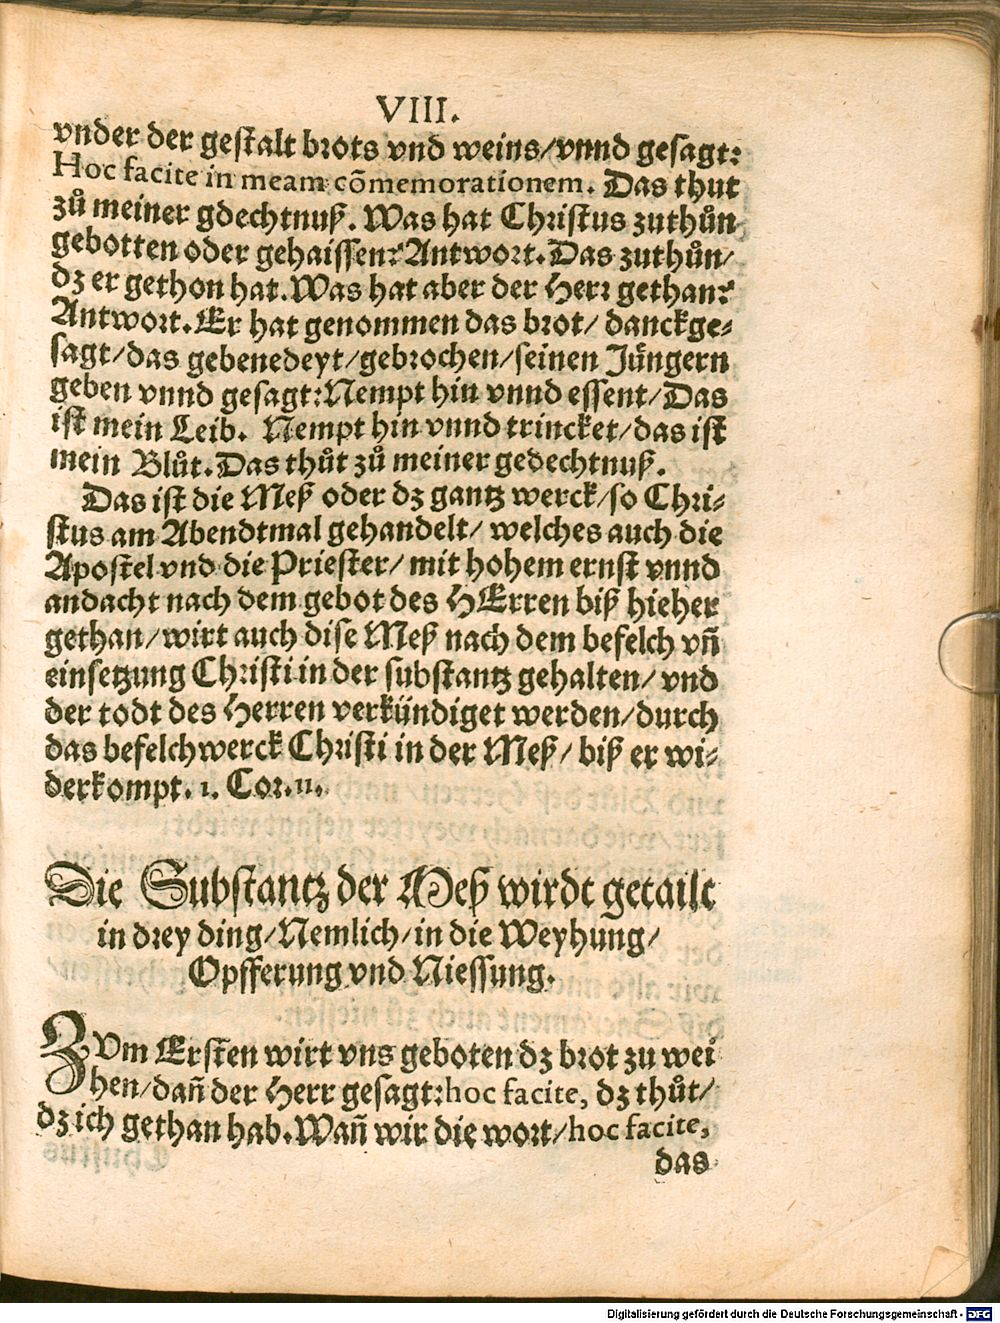 VIII.
vnder der gestalt brots vnd weins/vnnd gesagt:
Hoc facite in meam cõmemorationem. Das thut
zů meiner gdechtnuß. Was hat Christus zuthůn
gebotten oder gehaissen? Antwort. Das zuthůn/
dz er gethon hat. Was hat aber der Herr gethan?
Antwort. Er hat genommen das brot/ danckge⸗
sagt/das gebenedeyt/gebrochen/seinen Jüngern
geben vnnd gesagt: Nempt hin vnnd essent/Das
ist mein Leib. Nempt hin vnnd trincket/das ist
mein Blůt. Das thůt zů meiner gedechtnuß.
Das ist die Meß oder dz gantz werck/so Chri⸗
stus am Abendtmal gehandelt/ welches auch die
Apostel vnd die Priester/ mit hohem ernst vnnd
andacht nach dem gebot des HErren biß hieher
gethan/wirt auch dise Meß nach dem befelch vñ
einsetzung Christi in der substantz gehalten/ vnd
der todt des Herren verkündiget werden/durch
das befelchwerck Christi in der Meß/ biß er wi⸗
derkompt. 1. Cor. 11.
Die Substantz der Meß wirdt getailt
in drey ding/Nemlich/in die Weyhung/
Opfferung vnd Niessung.
ZVm Ersten wirt vns geboten dz brot zu wei
hen/dañ der Herr gesagt: hoc facite, dz thůt/
dz ich gethan hab. Wañ wir die wort/hoc facite,
das
Digitalisierung gefördert durch die Deutsche Forschungsgemeinschaft - DFG